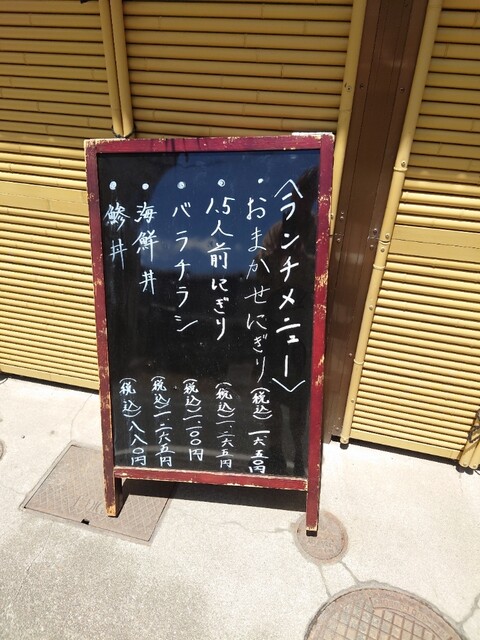 〈ランチメニュー〉
・おまかせにぎり(税込)一六五〇円
・1.5人前にぎり(税込)一、二六五円
・バラチラシ(税込)一、一〇〇円
・海鮮丼(税込)一、二六五円
・鯵丼(税込)八八〇円